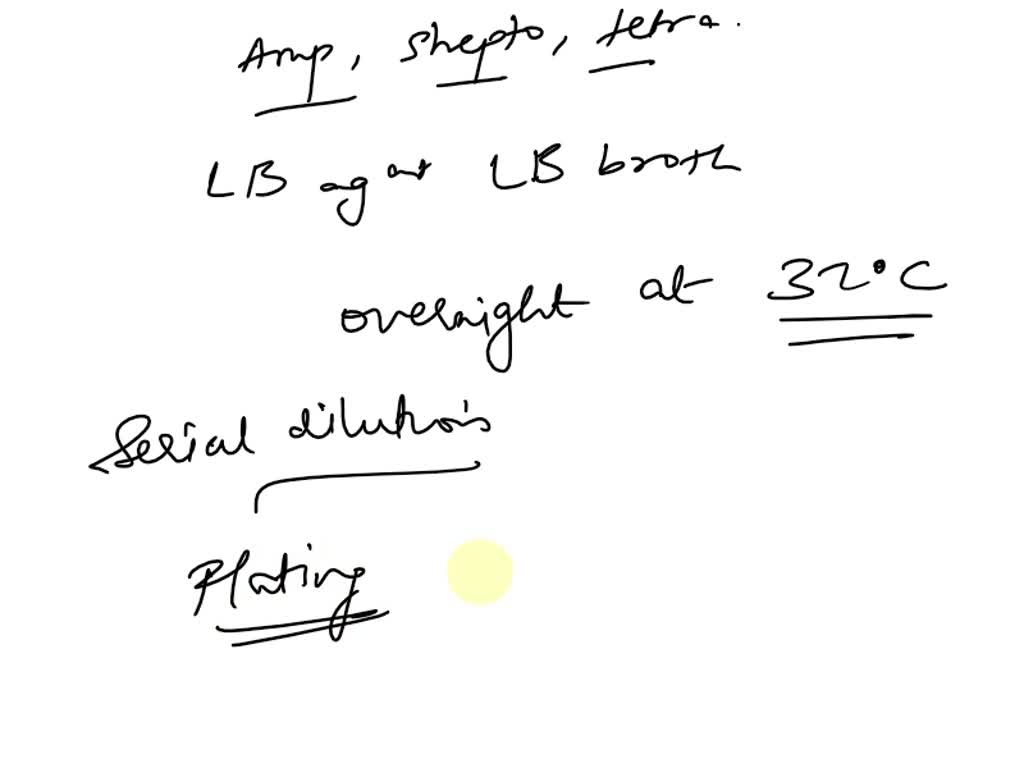 Amp, Strepto, tetra.
LB agar LB broth
overnight at 32°C
Serial dilutions
Plating